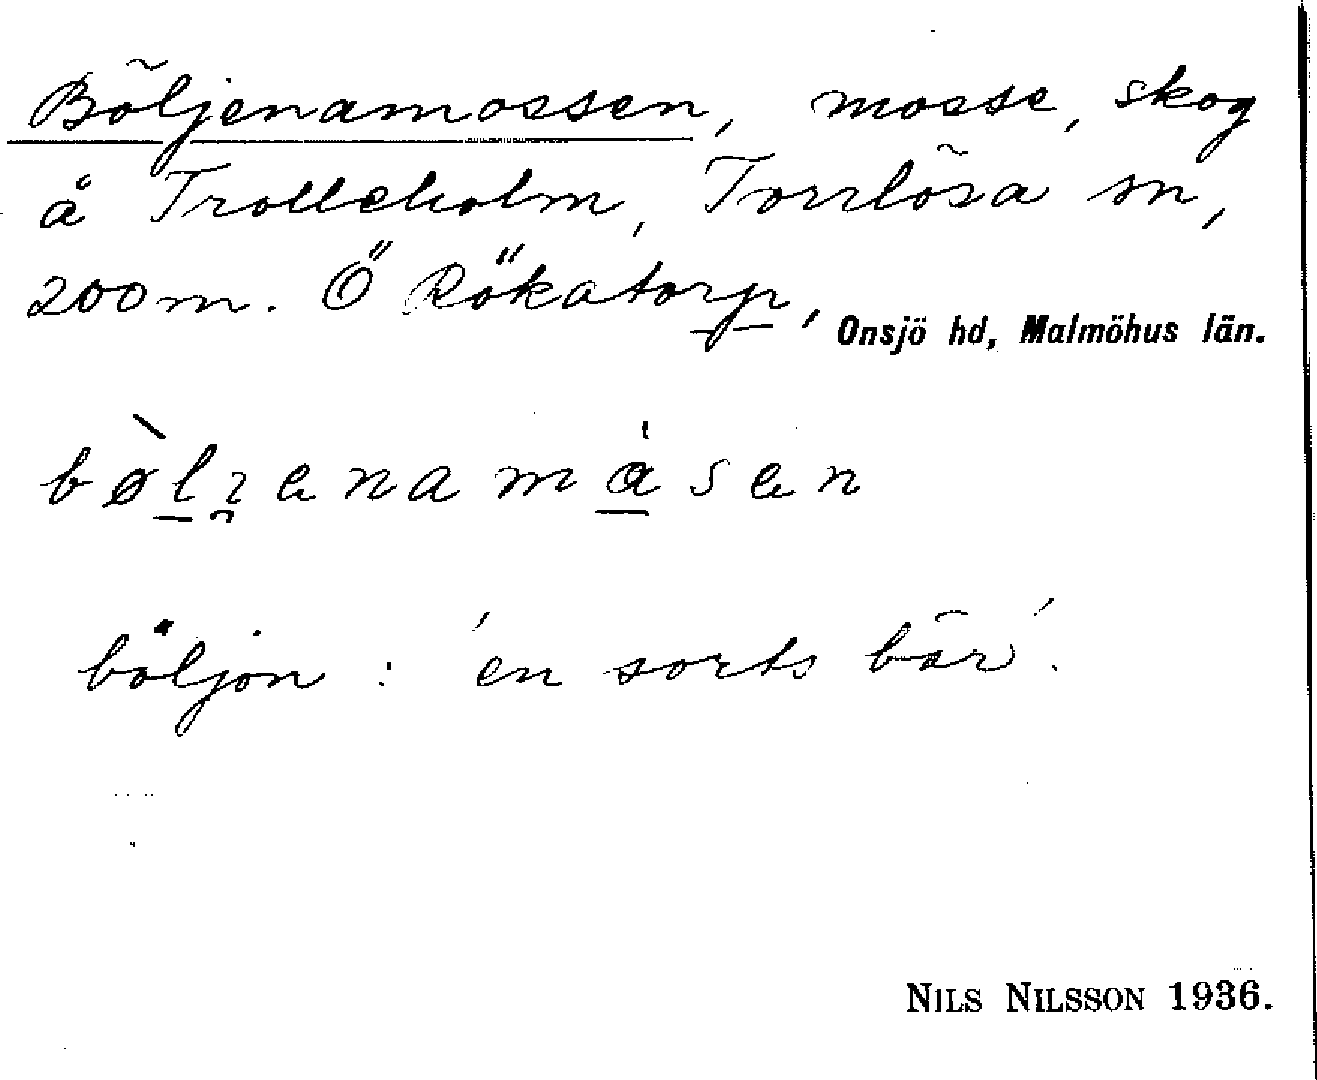 Böljenamossen, mosse, skog
å Trolleholm, Torrlösa sn,
200 m. Ö Rökatorp, Onsjö hd, Malmöhus län.
bøljenamåsen
böljon : 'en sorts bär'.
NILS NILSSON 1936.